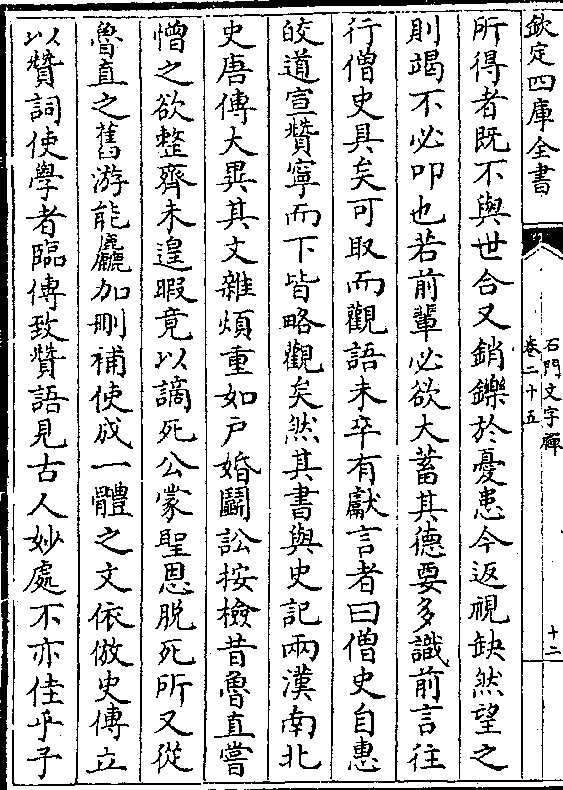 欽定四庫全書
石門文字禪
卷二十五
十二
所得者既不與世合又銷鑠於憂患今返視缺然望之
則竭不必叩也若前輩必欲大蓄其德要多識前言往
行僧史具矣可取而觀語未卒有獻言者曰僧史自惠
皎道宣贊寧而下皆略觀矣然其書與史記兩漢南北
史唐傳大異其文雜煩重如户婚鬭訟按檢昔魯直嘗
憎之欲整齊未遑暇竟以謫死公蒙聖恩脱死所又從
魯直之舊游能麤加刪補使成一體之文依倣史傳立
以贊詞使學者臨傳致贊語見古人妙處不亦佳乎予